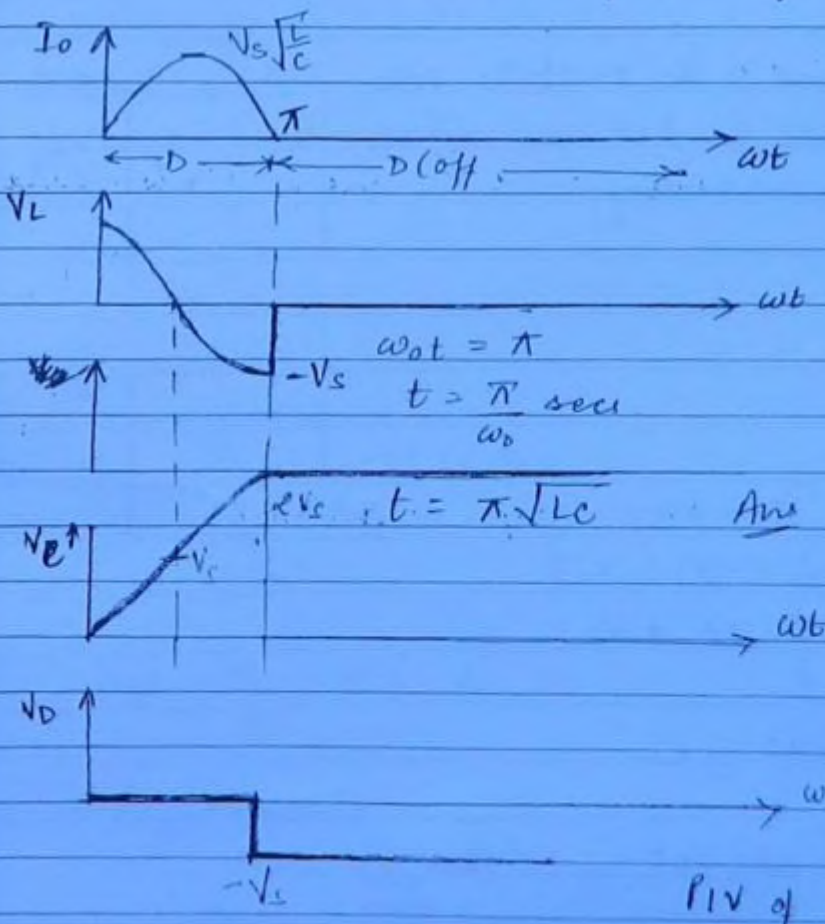 I₀ Vs √L/C
π
← D → ← D (off → ωt
VL
ωt
ω₀t = π
-Vs
t = π/ω₀ secs
2Vs t = π √LC Ans
Vc Vs
ωt
VD
ω
-Vs
PIV of